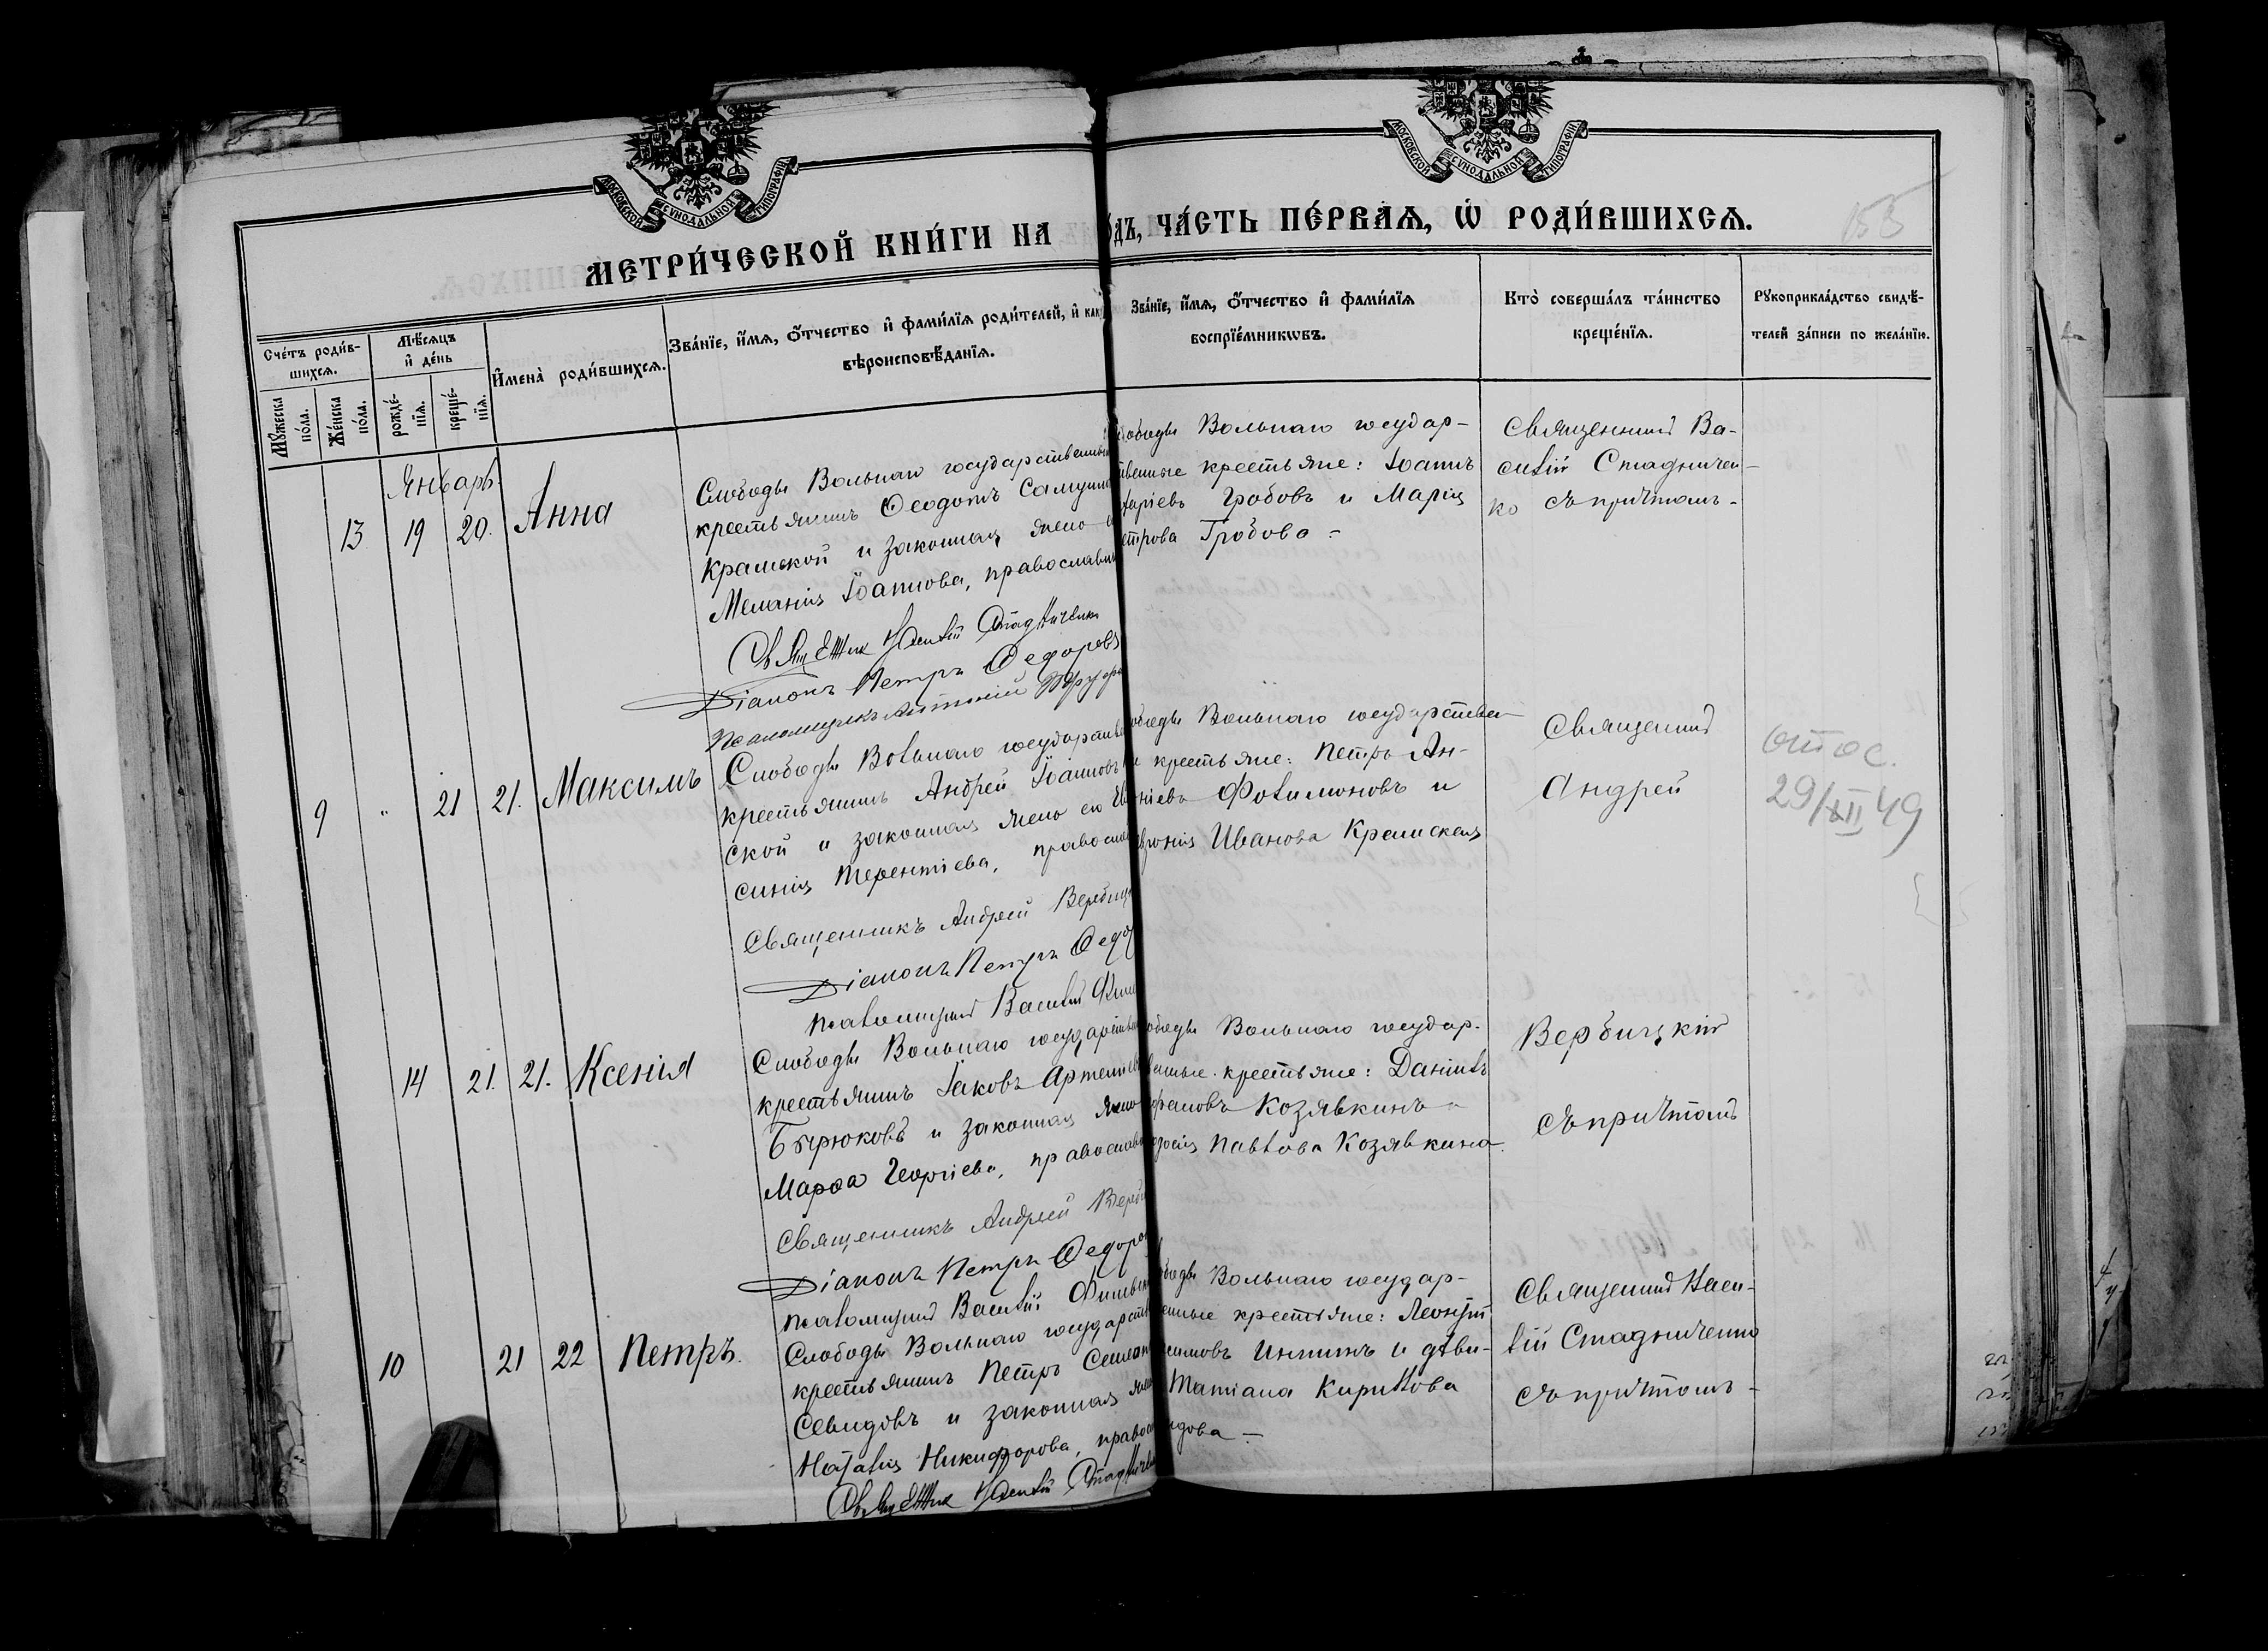 МОСКОВСКОЙ СѴНОДАЛЬНОЙ ТИПОГРАФІИ
МОСКОВСКОЙ СѴНОДАЛЬНОЙ ТИПОГРАФІИ
МЕТРИ́ЧЕСКОЙ КНИ́ГИ НА
ДЪ, ЧА́СТЬ ПЕ́РВАѦ, Ѡ҆ РОДИ́ВШИХСѦ.
Сче́тъ роди́в-
шихсѧ.
Мꙋ́жеска по́ла.
Же́нска по́ла.
Мѣ́сѧцъ
и҆ де́нь
рожде́-
нїѧ.
креще́-
нїѧ.
И҆мена̀ роди́вшихсѧ.
Зва́нїе, и҆́мѧ, ѻ҆́тчество и҆ фами́лїѧ роди́телей, и҆ как
вѣроисповѣ́данїѧ.
Зва́нїе, и҆́мѧ, ѻ҆́тчество и҆ фами́лїѧ
воспрїе́мникѡвъ.
Кто̀ соверша́лъ та́инство
креще́нїѧ.
Рꙋкоприкла́дство свидѣ́-
телей за́писи по жела́нїю.
Январь
13 19 20. Анна
Слободы Вольнаго государственный
крестьянинъ Ѳеодотъ
Крамской и законная жена
Меланія Іоаннова, православны
Священник Василій Стадниченко
Діаконъ Петръ Ѳедоровъ
Псаломщикъ Антоній
ободы Вольнаго государ-
ственные крестьяне: Іоаннъ
харіевъ Гробовъ и Марія
етрова Гробова -
Священникъ Ва-
силій Стадничен-
ко съ причтомъ -
9 " 21 21. Максимъ
Слободы Вольнаго государстве
крестьянинъ Андрей Іоанновъ
ской и законная жена его Ев
синія Терентіева, правосла
Священникъ Андрей Вербиц
Діаконъ Петръ Ѳедо
Псаломщикъ Василій
ободы Вольнаго государствен-
и крестьяне: Петръ Ан-
Филимоновъ и
вронія Иванова Крамская
Священникъ
Андрей
29/XII 49
14 21. 21. Ксенія
Слободы Вольнаго государстве
крестьянинъ Іаковъ Артемье
Бирюковъ и законная жена
Марѳа Георгіева, православ
Священникъ Андрей Верби
Діаконъ Петръ Ѳедоро
Псаломщикъ Василій
ободы Вольнаго государ-
венные крестьяне: Даніилъ
Козявкинъ
Павлова Козявкина.
Вербицкій
съ причтомъ
10 21 22 Петръ.
Слободы Вольнаго государств
крестьянинъ Петръ Семеон
Свидовъ и законная же
Наталія Никифорова, правос
Священник Василій Стадниче
боды Вольнаго государ-
енные крестьяне: Леонтій
симовъ и дѣви-
Татіана Кириллова
идова -
Священникъ Васи-
лій Стадниченко
съ причтомъ -